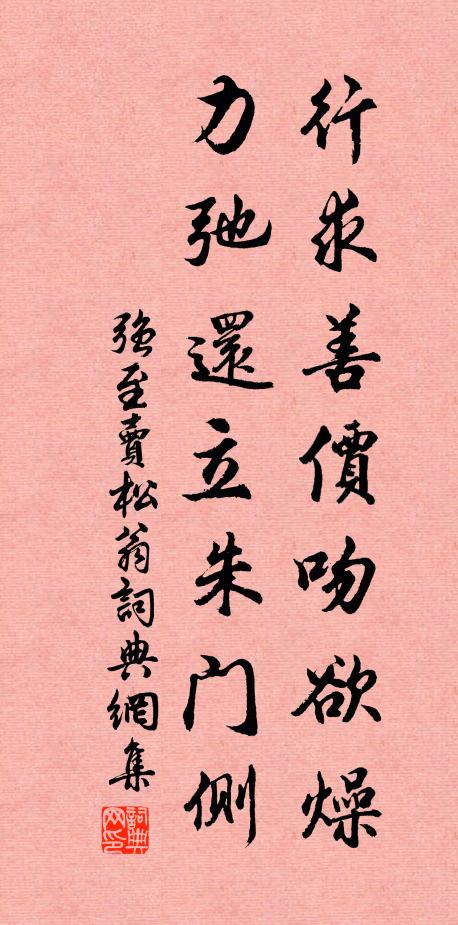 行求善價吻欲燥
力弛還立朱門側
強至賣松翁詞典網集
詞典网印